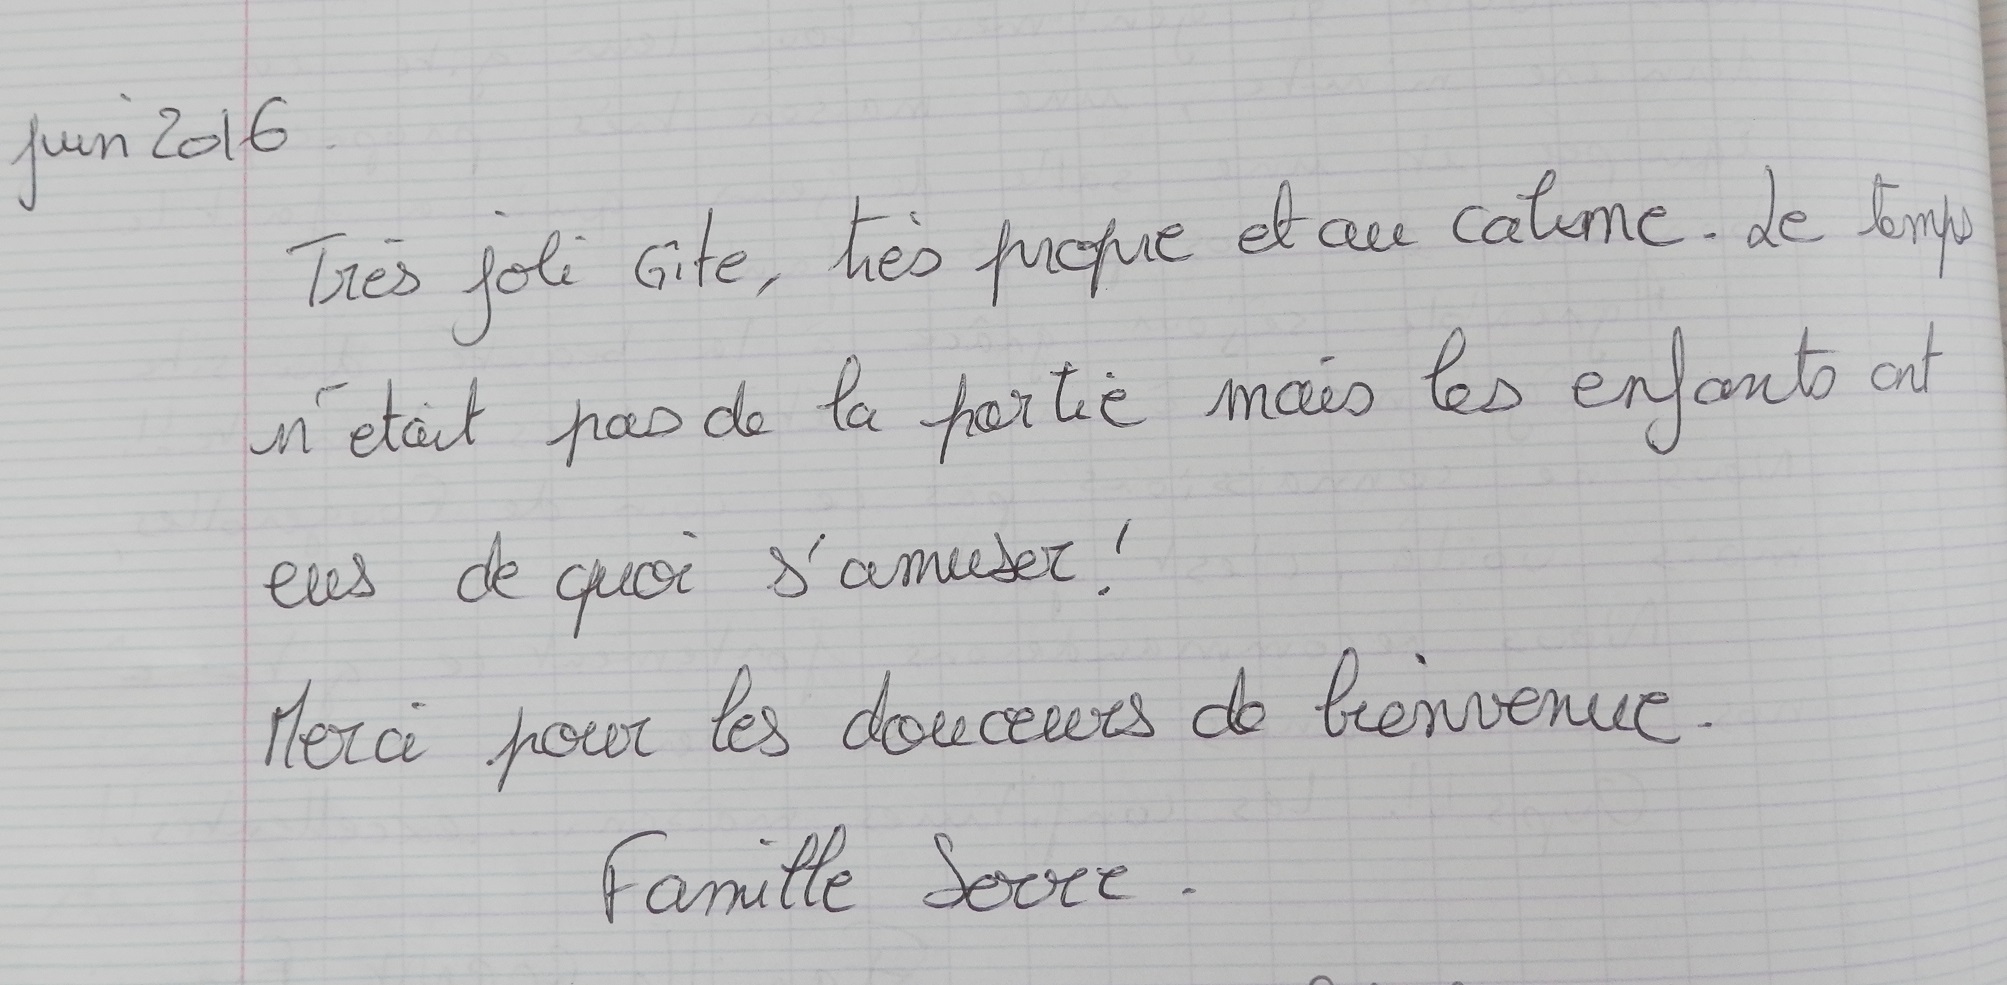 juin 2016
Très joli Gîte, très propre et au calme. Le temps
n'etait pas de la partie mais les enfants ont
eus de quoi s'amuser !
Merci pour les douceurs de bienvenue.
Famille Serre.